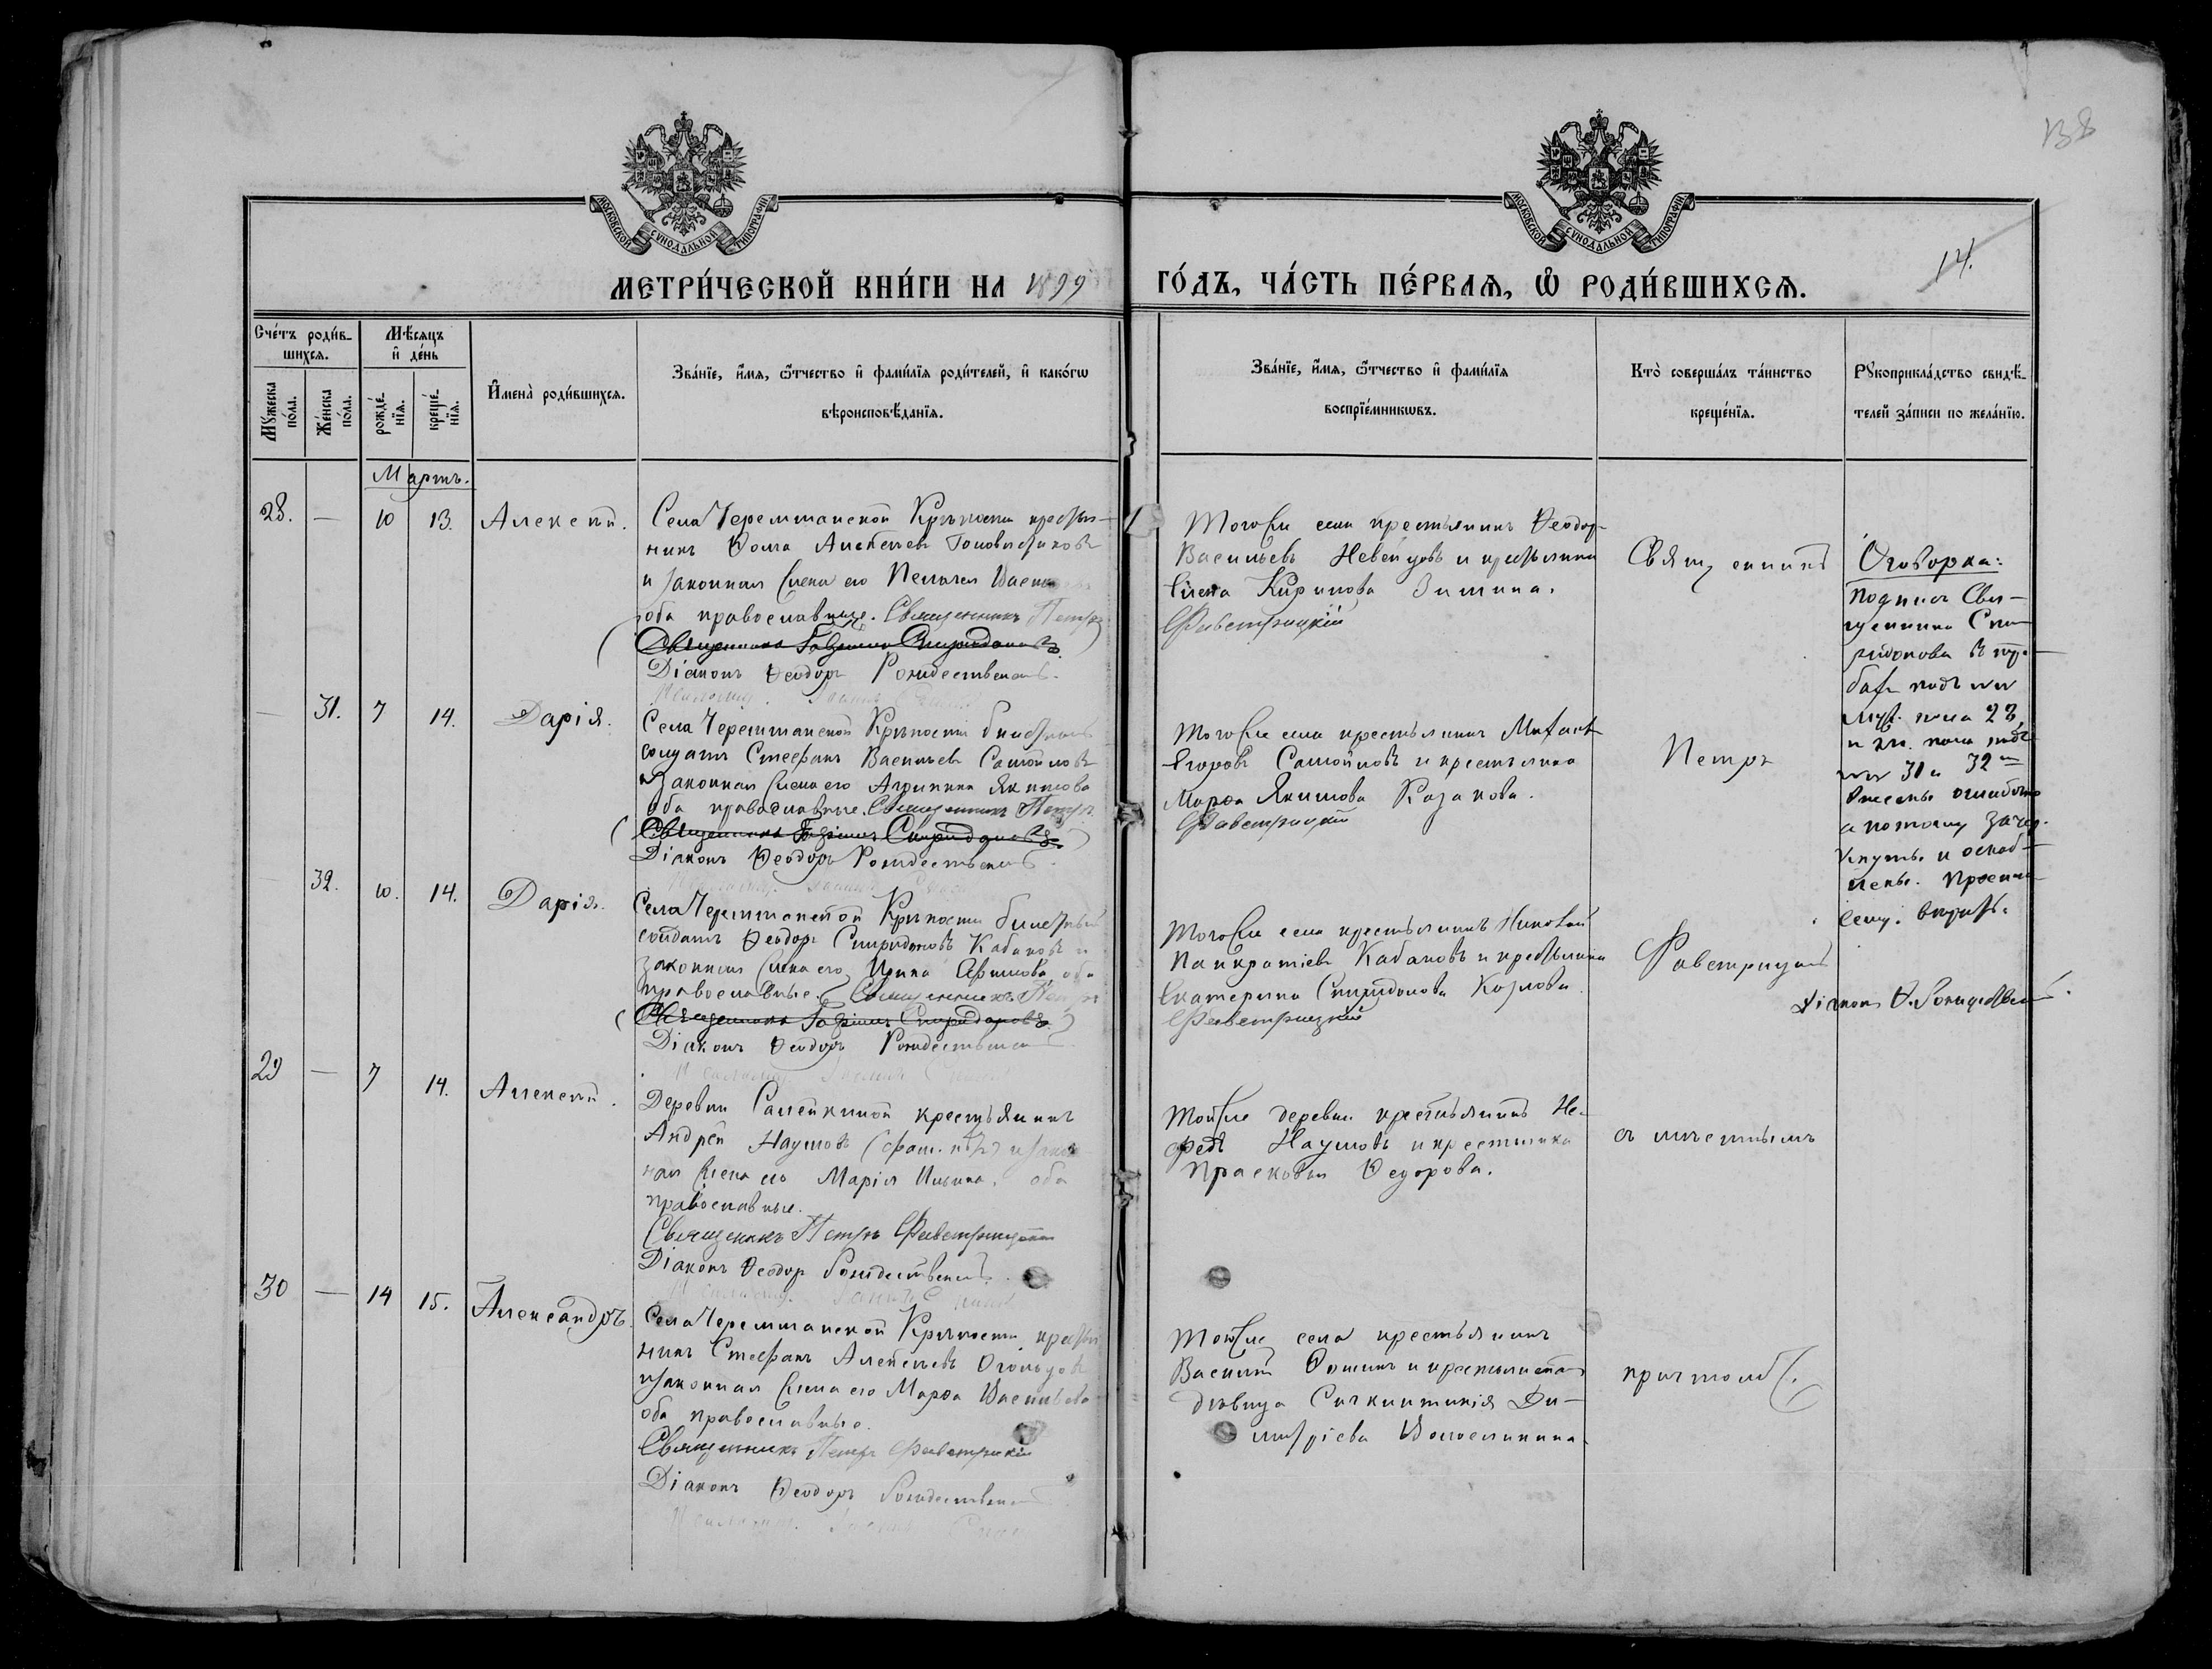 138
МОСКОВСКОЙ СУНОДАЛЬНОЙ ТИПОГРАФІИ
МОСКОВСКОЙ СУНОДАЛЬНОЙ ТИПОГРАФІИ
14.
МЕТРИ́ЧЕСКОЙ КНИ́ГИ НА 1899
ГО́ДЪ, ЧА́СТЬ ПЕ́РВАѦ, Ѽ РОДИ́ВШИХСѦ.
Сче́тъ роди́в-
шихсѧ.
Мꙋ́жеска по́ла.
Же́нска по́ла.
Мѣ́сѧцъ
и҆ де́нь
рожде́-
нїѧ.
креще́-
нїѧ.
И҆мена̀ роди́вшихсѧ.
Зва́нїе, и҆́мѧ, ѻ҆́тчество и҆ фами́лїѧ роди́телей, и҆ како́гѡ
вѣроисповѣ́данїѧ.
Зва́нїе, и҆́мѧ, ѻ҆́тчество и҆ фами́лїѧ
воспрїе́мникѡвъ.
Кто̀ соверша́лъ та́инство
креще́нїѧ.
Рꙋкоприкла́дство свидѣ́-
телей за́писи по жела́нїю.
Мартъ.
28. — 10 13. Алексѣй.
Села Черемшанской Крѣпости крестья-
нинъ Ѳома Алексѣевъ
и законная жена его Пелагея
оба православные. Священникъ Петръ
Священникъ Спиридоновъ
Діаконъ Ѳеодоръ Рождественскій
Того же села крестьянинъ Ѳеодоръ
Васильевъ и крестьянка
Елена Кирилова Зимина.
Фаветрицкій
Священникъ
Оговорка:
Подпись Свя-
щенника Спи-
ридонова въ
подъ №№
муж. пола 28,
и жен. пола подъ
№№ 31 и 32
ошибочно
а потому зачер-
кнуты и
вѣрить.
Діаконъ Ѳ. Рождественскій.
— 31. 7 14. Дарія.
Села Черемшанской Крѣпости билетный
солдатъ Стефанъ Васильевъ Самойловъ
и законная жена его Агрипина Якимова
оба православные. Священникъ Петръ
Священникъ Спиридоновъ
Діаконъ Ѳеодоръ Рождественскій.
Того же села крестьянинъ Михаилъ
Егоровъ Самойловъ и крестьянка
Марѳа Якимова Казакова.
Фаветрицкій
Петръ
32. 10. 14. Дарія.
Села Черемшанской Крѣпости билетный
солдатъ Ѳеодоръ Спиридоновъ Кабановъ и
законная жена его Ирина Ефимова, оба
православные. Священникъ Петръ
Священникъ Спиридоновъ
Діаконъ Ѳеодоръ Рождественскій
Того же села крестьянинъ Николай
Панкратіевъ Кабановъ и крестьянка
Екатерина Спиридонова Козлова
Фаветрицкій
Фаветрицкій
29 — 7 14. Алексѣй.
Деревни крестьянинъ
Андрей Наумовъ и закон-
ная жена его Марія Ильина, оба
православные.
Священникъ Петръ Фаветрицкій
Діаконъ Ѳеодоръ Рождественскій.
Той же деревни крестьянинъ Не-
федъ Наумовъ и крестьянка
Прасковья Ѳедорова.
съ мѣстнымъ
30 — 14 15. Александръ.
Села Черемшанской Крѣпости крестья-
нинъ Стефанъ Алексѣевъ
и законная жена его Марѳа Васильева
оба православные.
Священникъ Петръ Фаветрицкій
Діаконъ Ѳеодоръ Рождественскій
Того же села крестьянинъ
Василій Ѳоминъ и крестьянская
дѣвица Синклитикія Ди-
митріева
причтомъ.